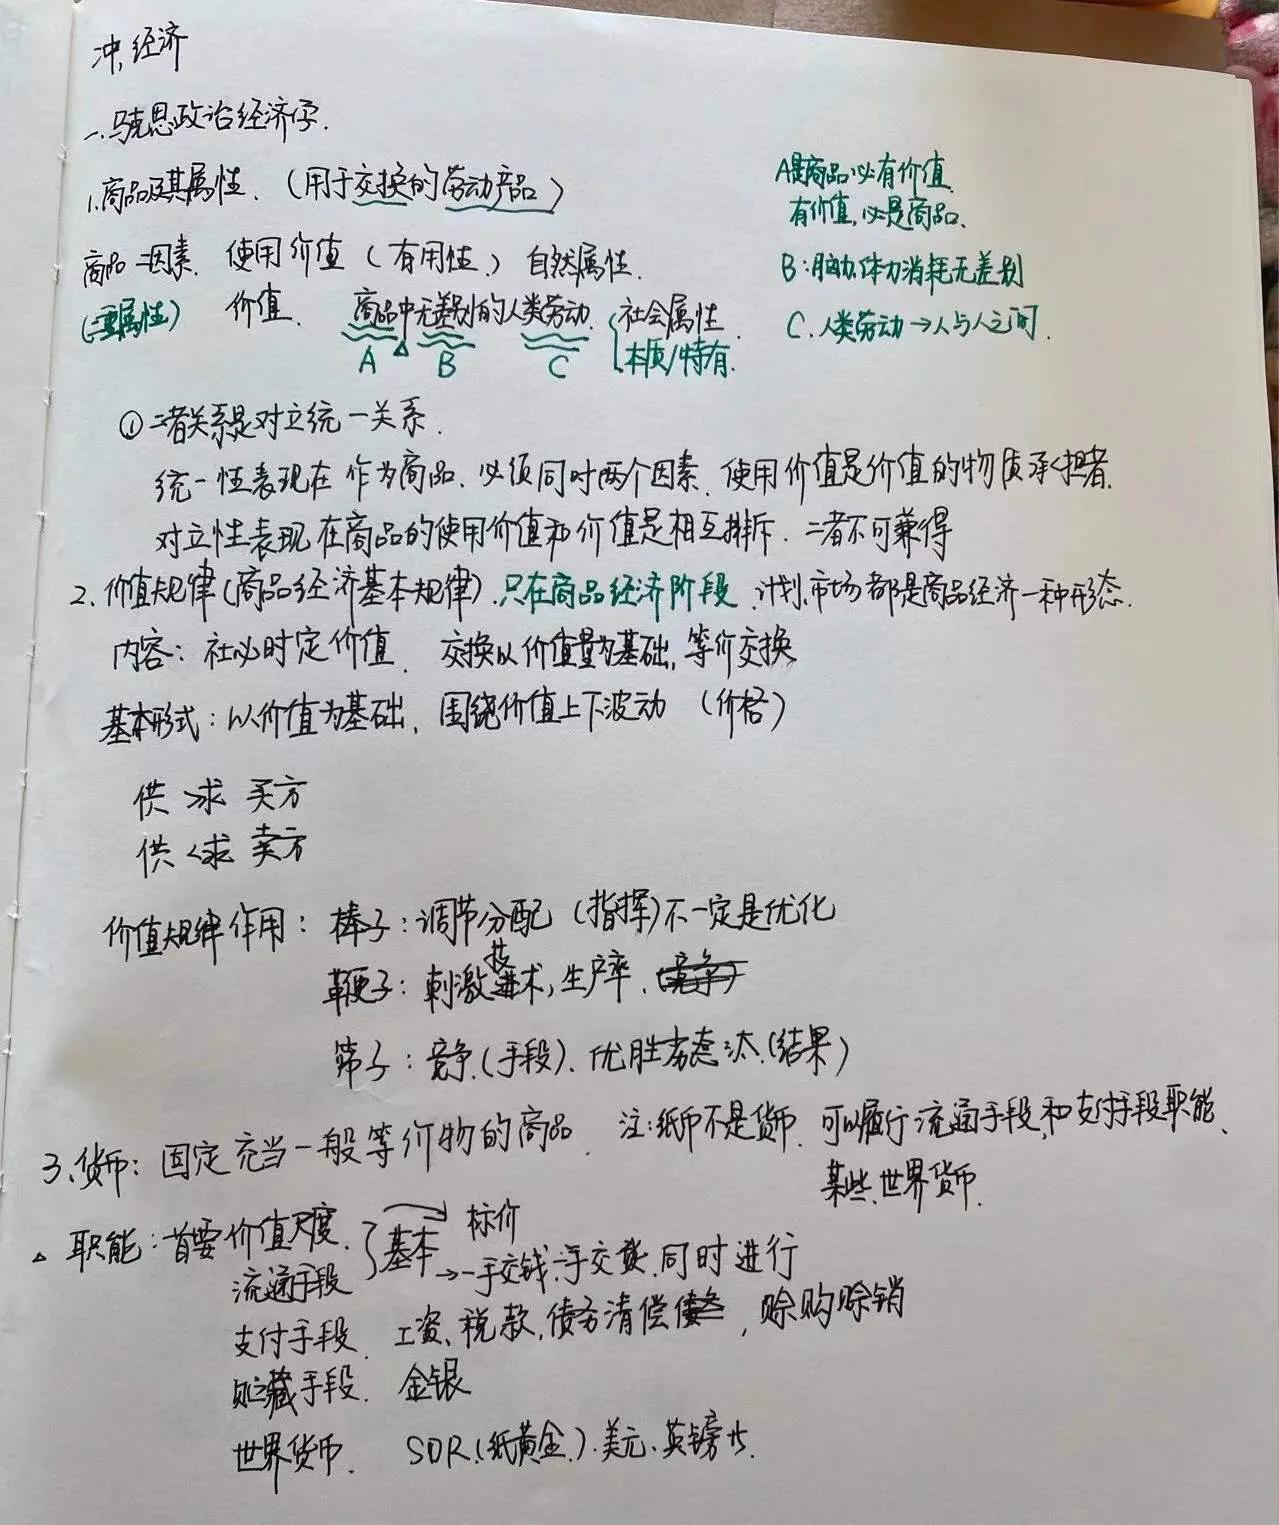 冲.经济
一.马克思政治经济学.
1.商品及其属性.（用于交换的劳动产品）
A是商品必有价值
有价值,必是商品.
商品二因素. 使用价值（有用性.）自然属性.
B:脑力.体力消耗无差别
(二重属性) 价值. 商品中无差别的人类劳动. 社会属性.
C.人类劳动→人与人之间.
A B C 本质/特有.
①二者关系是对立统一关系.
统一性表现在 作为商品.必须同时两个因素.使用价值是价值的物质承担者.
对立性表现在商品的使用价值和价值是相互排斥.二者不可兼得
2.价值规律(商品经济基本规律).只在商品经济阶段.计划.市场都是商品经济一种形态.
内容：社必时定价值. 交换以价值量为基础,等价交换
基本形式：以价值为基础,围绕价值上下波动（价格）
供>求 买方
供<求 卖方
价值规律作用：棒子：调节分配（指挥)不一定是优化
鞭子：刺激技术,生产率.
筛子：竞争.(手段).优胜劣态汰.(结果）
3.货币：固定充当一般等价物的商品. 注:纸币不是货币.可以履行流通手段,和支付手段职能、
某些.世界货币.
△ 职能：首要价值尺度. 基本 标价
流通手段 →一手交钱.一手交货.同时进行
支付手段. 工资、税款,债务清偿,赊购赊销
贮藏手段. 金银
世界货币. SDR.(纸黄金.).美元、英镑